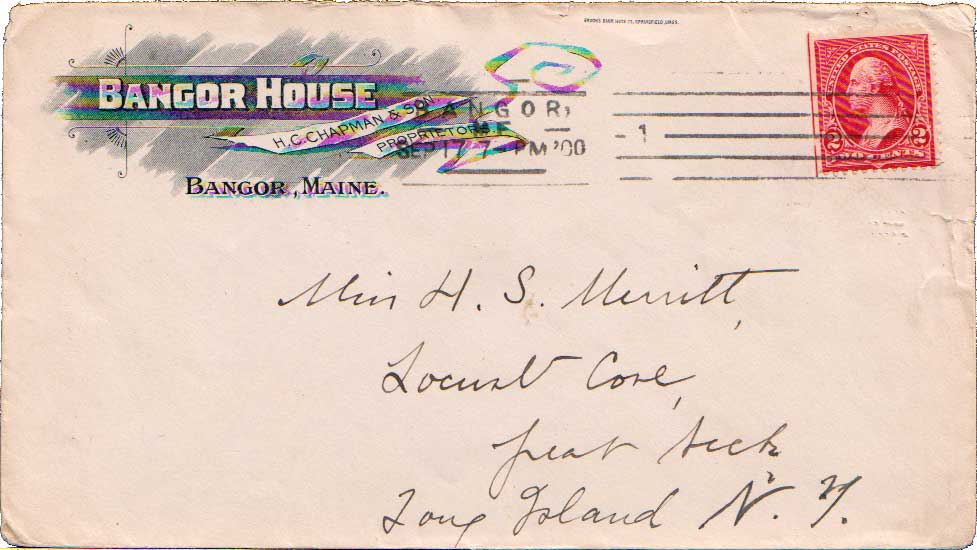 BANGOR HOUSE
H.C. CHAPMAN & SON
PROPRIETORS
BANGOR, MAINE.
BANGOR,
ME
SEP 17 7-PM '00
1
UNITED STATES POSTAGE
2 2
TWO CENTS
Miss H. S. Merritt,
Locust Cove,
Great Neck
Long Island N. Y.